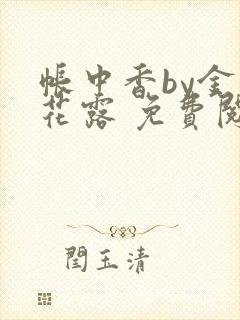 帳中香by金
花露 免費閱
閆玉清